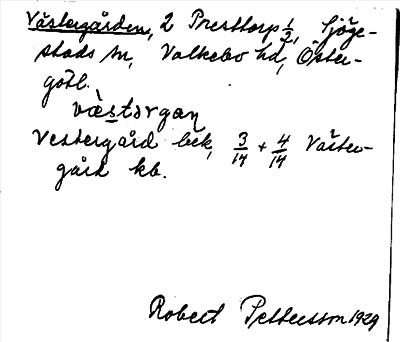 Västergården, 2 Presttorp 1/2, Sjöge-
stads sn, Valkebo hd, Öster-
götl.
væstərgaɳ
Vestergård bek, 3/14 + 4/14 Väster-
gård kb.
Robert Pettersson 1929